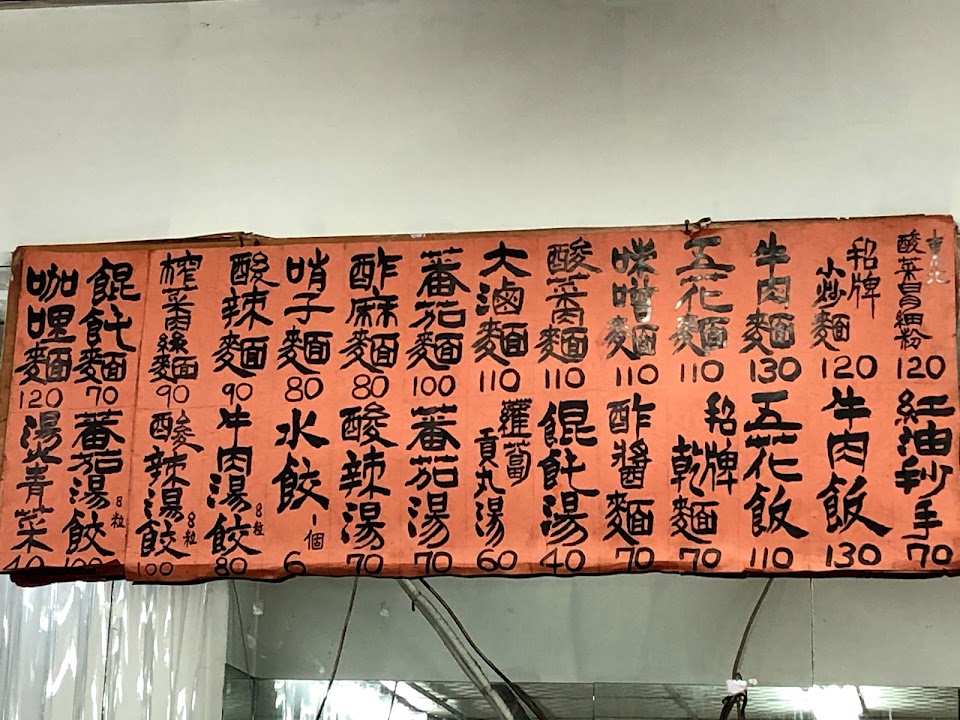 東北
酸菜冒細粉 120
招牌
小炒麵 120
牛肉麵 130
五花麵 110
味噌麵 110
酸菜肉麵 110
大滷麵 110
蕃茄麵 100
酢麻麵 80
哨子麵 80
酸辣麵 90
榨菜肉絲麵 90
餛飩麵 70
咖哩麵 120
紅油抄手 70
牛肉飯 130
五花飯 110
招牌
乾麵 70
酢醬麵 70
餛飩湯 40
蘿蔔
貢丸湯 60
蕃茄湯 70
酸辣湯 70
水餃一個 6
牛肉湯餃 8粒 80
酸辣湯餃 8粒 100
蕃茄湯餃 8粒 100
燙青菜 40